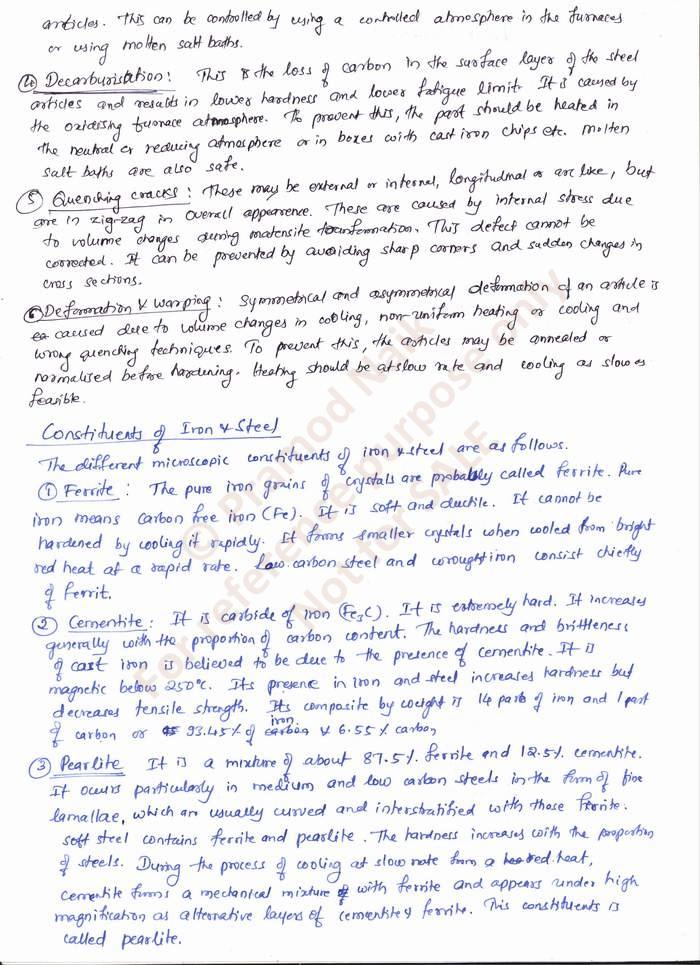 articles. This can be controlled by using a controlled atmosphere in the furnaces
or using molten salt baths.
④ Decarburisation: This is the loss of carbon in the surface layer of the steel
articles and results in lower hardness and lower fatigue limit. It is caused by
the oxidising furnace atmosphere. To prevent this, the part should be heated in
the neutral or reducing atmosphere or in boxes with cast iron chips etc. molten
salt baths are also safe.
⑤ Quenching cracks: These may be external or internal, longitudinal or arc like, but
are in zig-zag in overall appearence. These are caused by internal stress due
to volume changes during matensite transformation. This defect cannot be
corrected. It can be prevented by avoiding sharp corners and sudden changes in
cross sections.
⑥ Deformation & Warping: Symmetrical and asymmetrical deformation of an article is
caused due to volume changes in cooling, non-uniform heating or cooling and
wrong quenching techniques. To prevent this, the articles may be annealed or
normalised before hardening. Heating should be at slow rate and cooling as slow as
feasible.
Constituents of Iron & Steel
The different microscopic constituents of iron & steel are as follows.
① Ferrite: The pure iron grains of crystals are probably called ferrite. Pure
iron means carbon free iron (Fe). It is soft and ductile. It cannot be
hardened by cooling it rapidly. It forms smaller crystals when cooled from bright
red heat at a rapid rate. Low carbon steel and wrought iron consist chiefly
of ferrit.
② Cementite: It is carbide of iron (Fe3C). It is extremely hard. It increases
generally with the proportion of carbon content. The hardness and brittleness
of cast iron is believed to be due to the presence of cementite. It is
magnetic below 250°C. Its presence in iron and steel increases hardness but
decreases tensile strength. Its composite by weight is 14 parts of iron and 1 part
of carbon or 93.45% of iron & 6.55% carbon
③ Pearlite It is a mixture of about 87.5% ferrite and 12.5% cementite.
It occurs particularly in medium and low carbon steels in the form of fine
lamallae, which are usually curved and interstratified with those ferrite.
soft steel contains ferrite and pearlite. The hardness increases with the proportion
of steels. During the process of cooling at slow rate from a red heat,
cementite forms a mechanical mixture with ferrite and appears under high
magnification as alternative layers of cementite & ferrite. This constituents is
called pearlite.
© Pramod Naik
For reference purpose only
Not for SALE